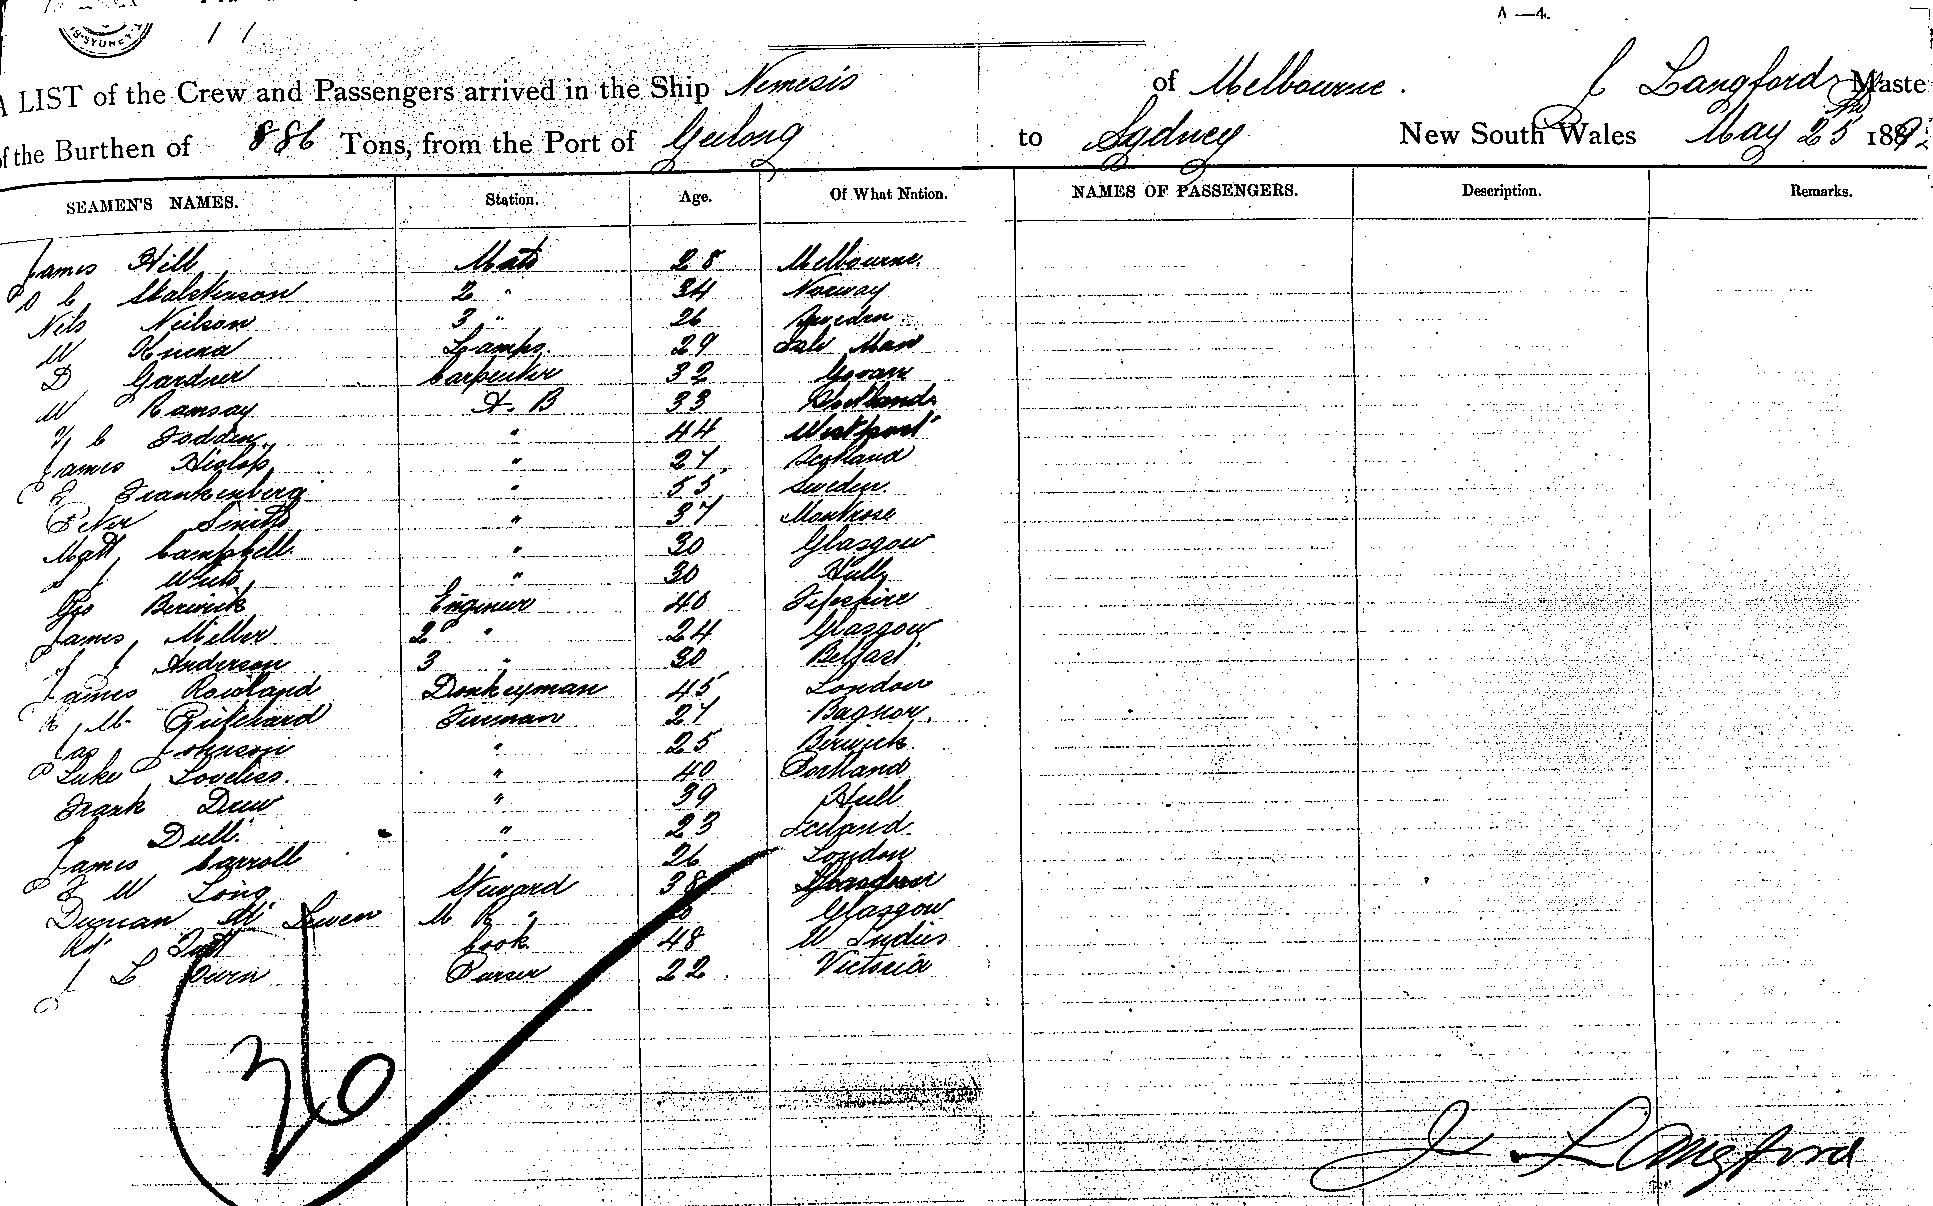 SYDNEY
A—4.
A LIST of the Crew and Passengers arrived in the Ship Nemesis of Melbourne. J Langford Maste
of the Burthen of 886 Tons, from the Port of Geelong to Sydney New South Wales May 25 188
SEAMEN'S NAMES. Station. Age. Of What Nation. NAMES OF PASSENGERS. Description. Remarks.
James Hill Mate 28 Melbourne.
2 " 34 Norway
Nels Neilson 3 " 26 Sweden
W Lamps 29 Isle Man
D Gardner Carpenter 32 Govan
W Ramsay A. B 33
" 44 Westport
James Hislop " 27 Scotland
Frankenberg " 55 Sweden.
Peter Smith " 37 Montrose
Matt Campbell " 30 Glasgow
White " 30 Hull
Geo Berwick Engineer 40 Fifeshire
James Miller 2 " 24 Glasgow
J J Anderson 3 " 30 Belfast
James Rowland Donkeyman 45 London
Pritchard Fireman 27 Bagnor.
Jas Johnson " 25 Berwick.
Luke Loveless. " 40 Portland
Frank Drew " 39 Hull
J Dull " 23 Iceland.
James Carroll " 26 London
W Long Steward 38 Glasgow
Duncan Mc Ewen M R " Glasgow
Cook 48 W Indies
J L Purser 22. Victoria
36
J Langford